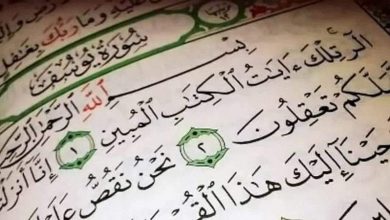 وَمَا رَبُّكَ بِغَٰفِلٍ
سُورَةُ يُوسُفَ
بِسۡمِ ٱللَّهِ ٱلرَّحۡمَٰنِ ٱلرَّحِيمِ
الٓرۚ تِلۡكَ ءَايَٰتُ ٱلۡكِتَٰبِ ٱلۡمُبِينِ ١ إِنَّآ أَنزَلۡ
لَّعَلَّكُمۡ تَعۡقِلُونَ ٢ نَحۡنُ نَقُصُّ عَلَ
إِلَيۡكَ هَٰذَا ٱلۡقُرۡ